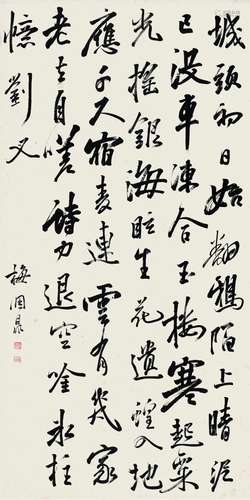 城頭初日始翻鴉陌上晴泥
已没車凍合玉樓寒起粟
光搖銀海眩生花遺蝗入地
應千尺宿麥連雲有幾家
老去自嗟詩力退空吟冰柱
憶劉叉
梅調鼎